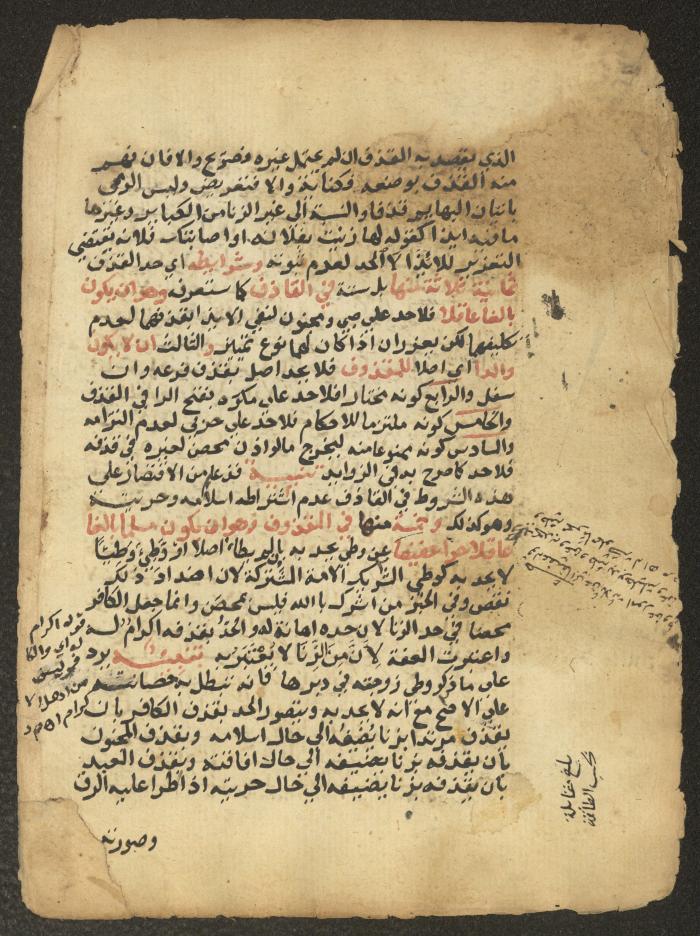 الذي يقصد به القذف ان لم يحتمل غيره فصريح والا فان فهم
منه القذف بوضعه فكناية والا فتعريض وليس الرمي
باتيان البهايم قذفا والنسبة الى غير الزنا من الكباير وغيرها
مما فيه ايذا كقوله لها زنيت بفلانه او اصابتك فلانه يقتضي
التعزير للايذا لا الحد لعدم ثبوته وشرايطه اي حد القذف
ثمانية ثلاثة منها بل ستة في القاذف كما ستعرفه وهو ان يكون
بالغا عاقلا فلا حد على صبي ومجنون لنفي الايذا بقذفهما لعدم
تكليفهما لكن يعزران اذا كان لهما نوع تمييز والثالث ان لا يكون
والدا اي اصلا للمقذوف فلا يحد اصل بقذف فرعه وان
سفل والرابع كونه مختارا فلا حد على مكره بفتح الرا في القذف
والخامس كونه ملتزما للاحكام فلا حد على حربي لعدم التزامه
والسادس كونه ممنوعا منه ليخرج ما لو اذن محصن لغيره في قذفه
فلا حد كما صرح به في الزوايد تنبيه قد علم من الاقتصار على
هذه الشروط في القاذف عدم اشتراط اسلامه وحريته
وهو كذلك وخمسة منها في المقذوف وهو ان يكون مسلما بالغا
عاقلا حرا عفيفا عن وطئ يحد به بان لم يطأ اصلا او وطئ وطيا
لا يحد به كوطئ الشريك الامة المشتركة لان اضداد ذلك
نقص وفي الخبر من اشرك بالله فليس بمحصن وانما جعل الكافر
محصنا في حد الزنا لان حده اهانة له والحد بقذفه اكرام له
واعتبرت العفة لان من الزنا لا يتعير به تنبيه يرد
على ما ذكر وطئ زوجته في دبرها فانه تبطل به حصانته
على الاصح مع انه لا يحد به ويتصور الحد بقذف الكافر بان
يقذف مرتدا بزنا يضيفه الى حال اسلامه وبقذف المجنون
بان يقذفه بزنا يضيفه الى حال افاقته وبقذف العبد
بان يقذفه بزنا يضيفه الى حال حريته اذا طرا عليه الرق
وصورته
قوله اكرام
بلغ مقابلة
بحسب الطاقة